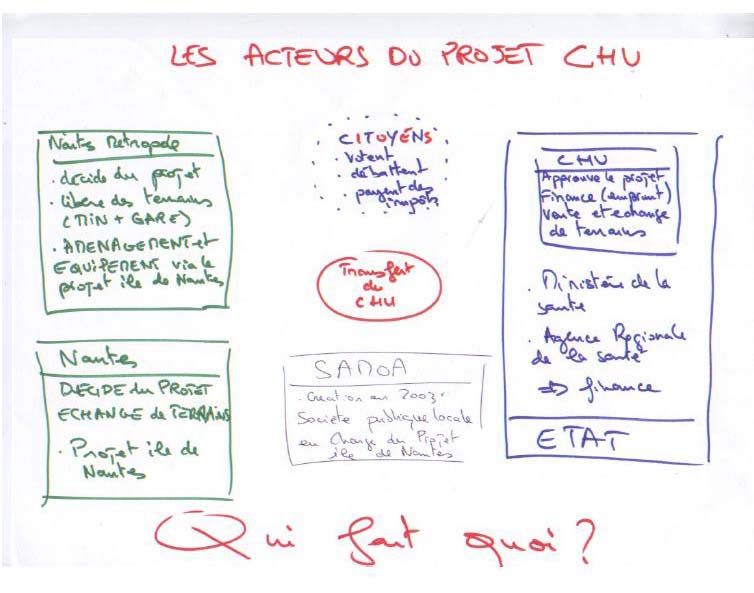 LES ACTEURS DU PROJET CHU
Nantes Métropole
. décide du projet
. libère des terrains
(MIN + GARE)
. AMENAGEMENT et
EQUIPEMENT via le
projet ile de Nantes
CITOYENS
. votent
. débattent
. payent des
impôts
CHU
Approuve le projet
Finance (emprunt)
Vente et échange
de terrains
. Ministère de la
santé
. Agence Régionale
de la santé
=> finance
ETAT
Transfert
du
CHU
Nantes
DECIDE du PROJET
ECHANGE de TERRAINS
. Projet ile de
Nantes
SAMOA
. Création en 2003.
Société publique locale
en charge du Projet
ile de Nantes
Qui fait quoi ?